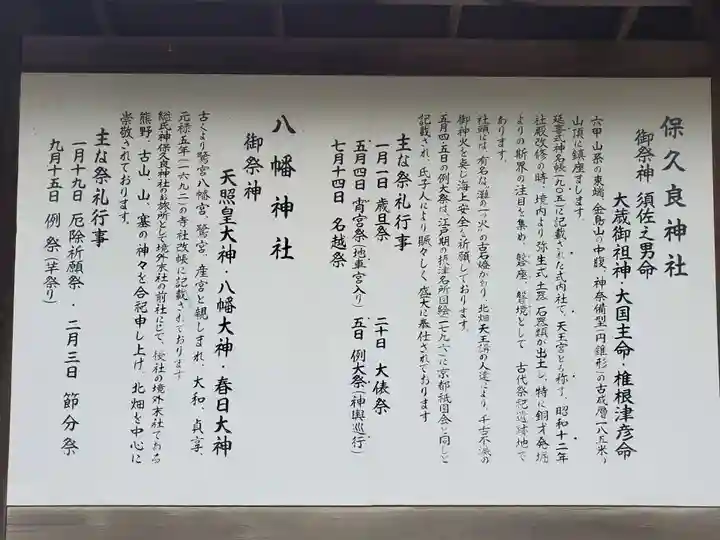 保久良神社
御祭神 須佐之男命
大歳御祖神・大国主命・椎根津彦命
六甲山系の東端、金鳥山の中腹、神奈備型(円錐形)の古成層一八五米の
山頂に鎮座まします。
延喜式神名帳(九〇五)に記載された式内社で、天王宮とも称す。昭和十二年
社殿改修の時、境内より弥生式土器、石器類が出土し、特に銅才発堀
よりの斯界の注目を集め、磐座、磐境として 古代祭祀遺跡地で
あります。
社頭には、有名な、灘の一つ火の古石燈があり、北畑天王講の人達により、千古不滅の
御神火を奉じ海上安全を祈願しております。
五月四・五日の例大祭は、江戸期の摂津名所図絵(一七九六)に京都祇園会と同じと
記載され、氏子人により賑々しく盛大に奉仕されております
主な祭礼行事
一月一日 歳旦祭 二十日 大俵祭
五月四日 宵宮祭(地車宮入り) 五日 例大祭(神輿巡行)
七月十四日 名越祭
八幡神社
御祭神
天照皇大神・八幡大神・春日大神
古くより鷺宮八幡宮、鷺宮、産宮と親しまれ、大和、貞享、
元禄五年(一六九二)の寺社改帳に記載されております
総氏神保久良神社の御旅所として境外末社の前社にして、後社の境外末社である
熊野、古山、山、塞の神々を合祀申し上げ、北畑を中心に
崇敬されております。
主な祭礼行事
一月十九日 厄除祈願祭 ・ 二月三日 節分祭
九月十五日 例祭(芋祭り)